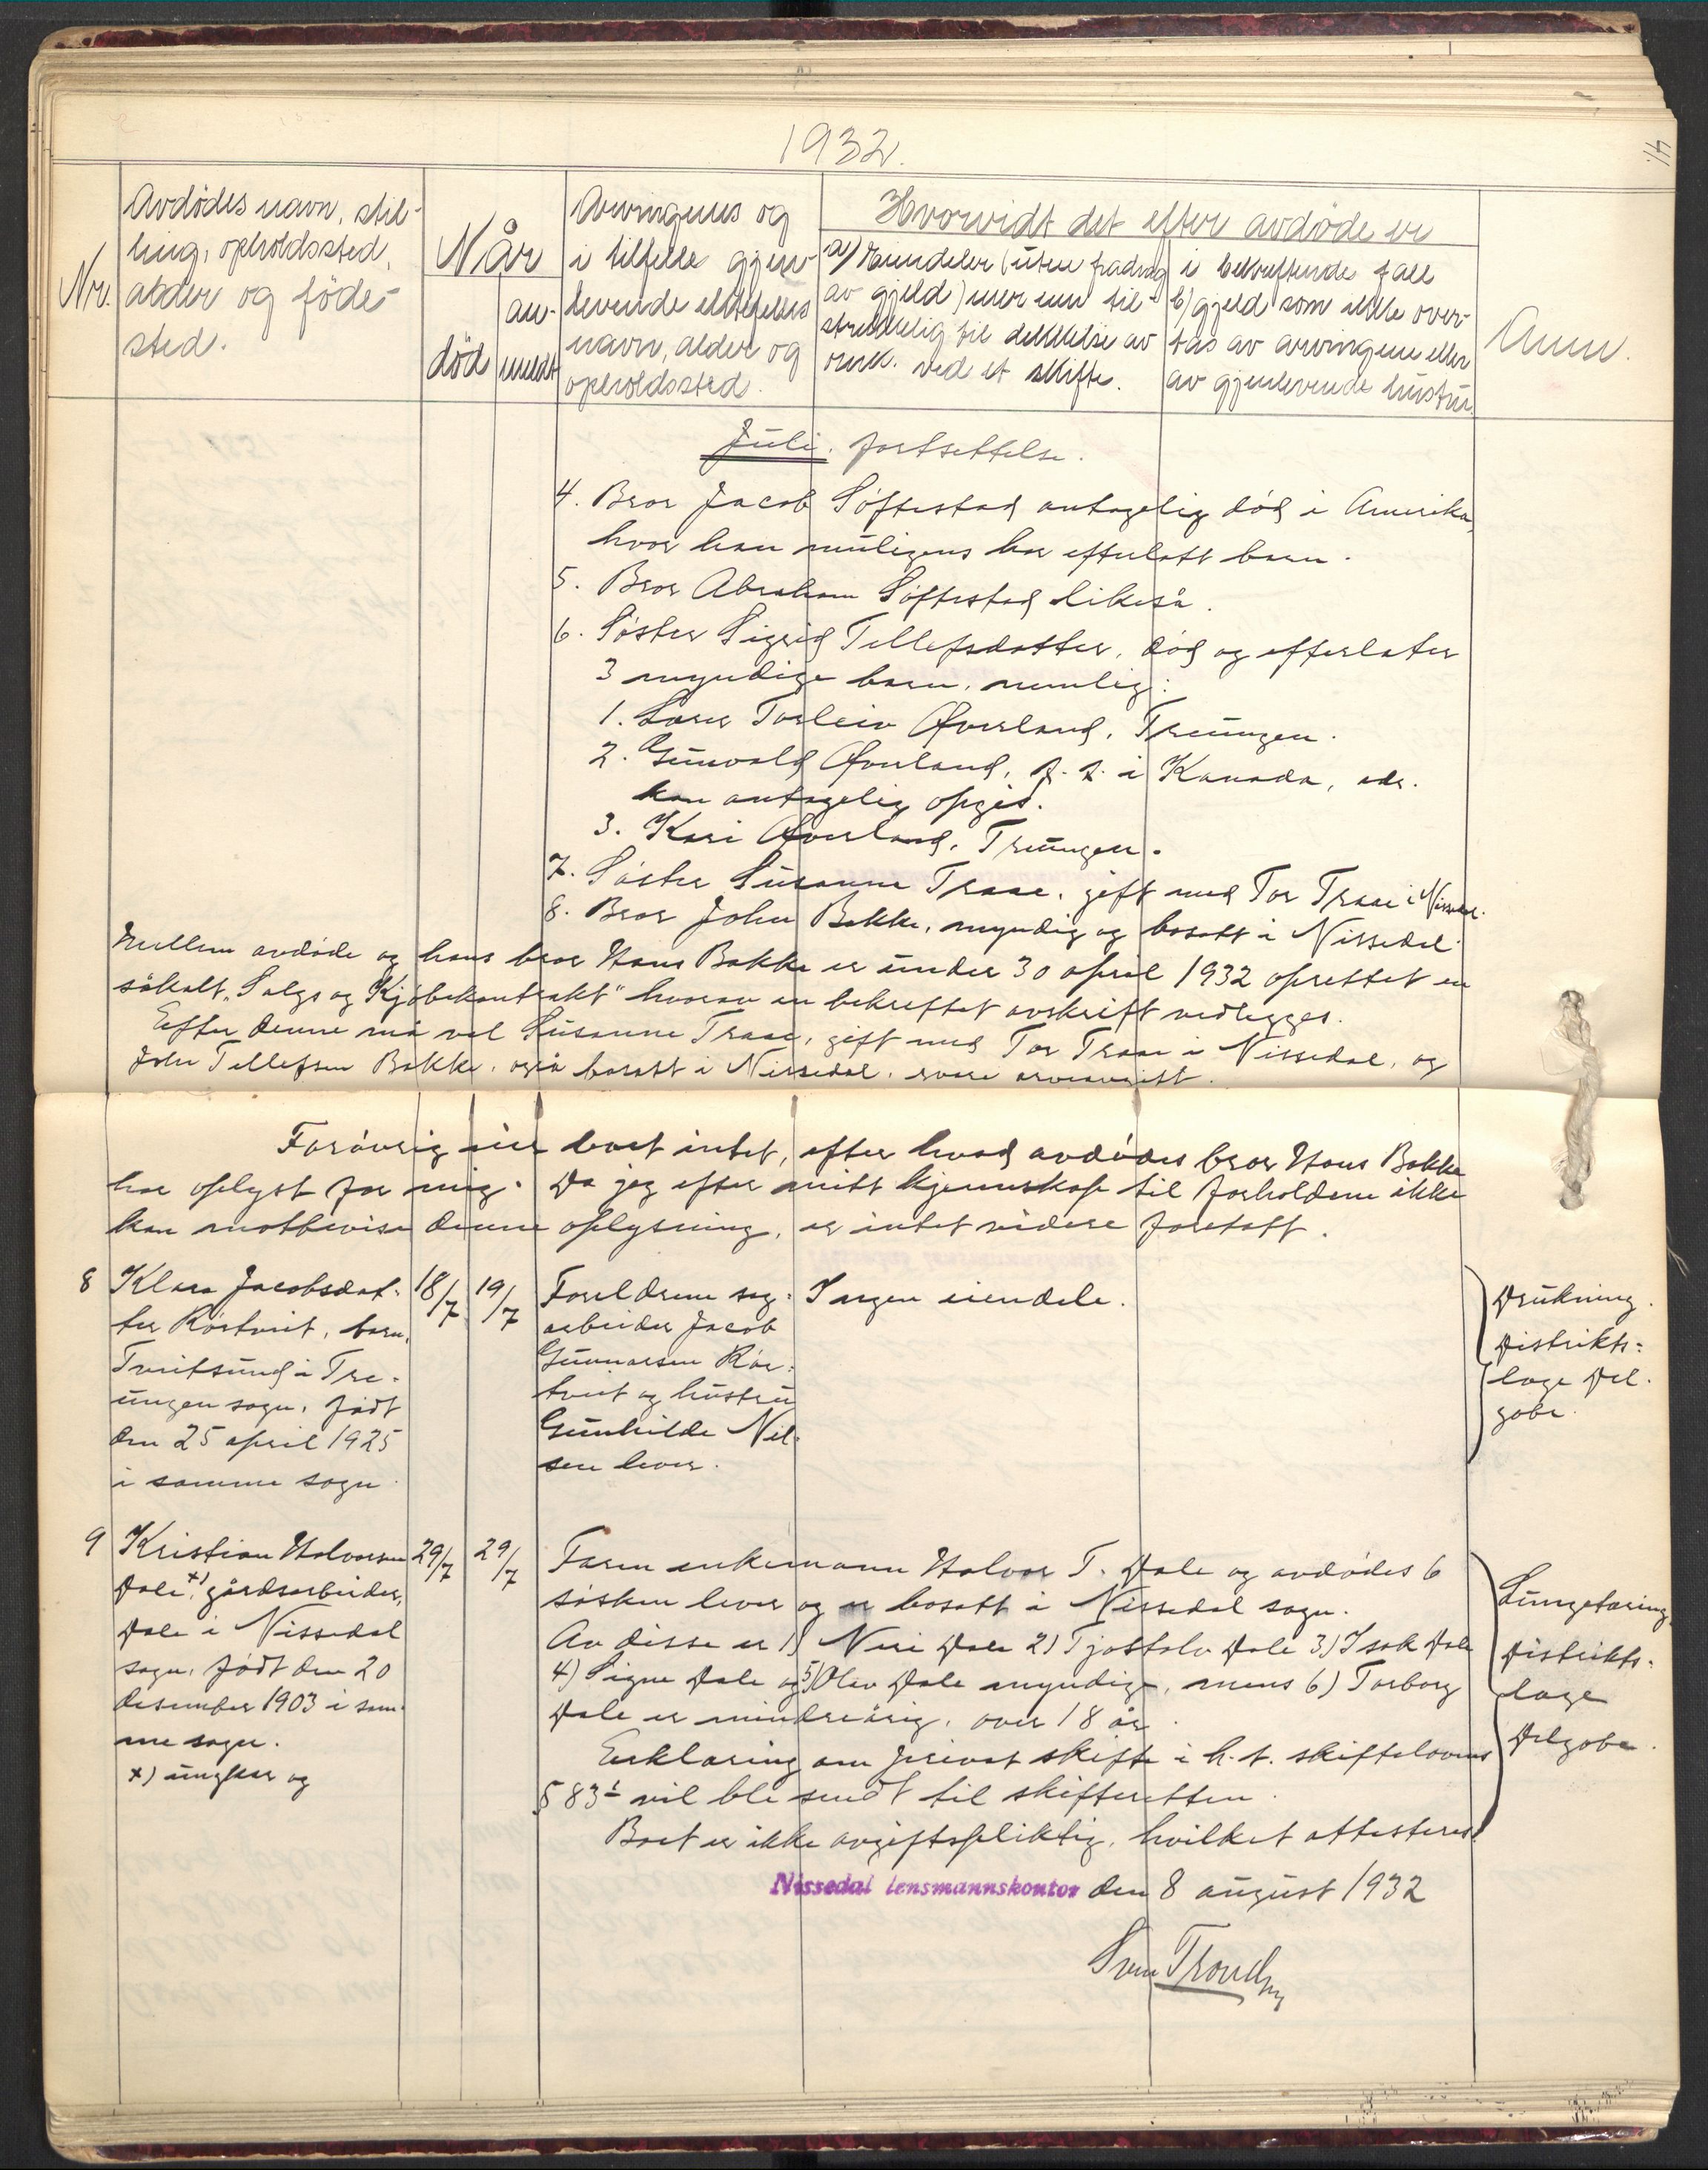 1932.
41.
Nr.
Avdödes navn, stil-
ling, opholdssted,
alder og føde-
sted.
Når
död
an-
meldt
Arvingenes og
i tilfelle gjen-
levende ektefelles
navn, alder og
opholdssted.
Hvorvidt det efter avdöde er
a) Eiendeler (uten fradrag
av gjeld) mer enn til-
strekkelig til dekkelse av
omk. ved et skifte.
i betreffende fall
b) gjeld som ikke over-
tas av arvingene eller
av gjenlevende hustru.
Anm.
Juli. fortsettelse.
4. Bror Jacob Söftestad antagelig död i Amerika,
hvor han muligens har efterlatt barn.
5. Bror Abraham Söftestad likeså.
6. Söster Sigrid Tellefsdatter, död og efterlater
3 myndige barn, nemlig:
1. Torleiv Øverland, Treungen.
2. Gunvald Øverland, p.t. i Kanada, adr.
kan antagelig opgis.
3. Kari Øverland, Treungen.
7. Söster Susanne Traae, gift med Tor Traae i Nissedal.
8. Bror John Bakke, myndig og bosatt i Nissedal.
Mellem avdöde og hans bror Hans Bakke er under 30 april 1932 oprettet en
såkalt „Salgs og Kjöbekontrakt" hvorav en bekreftet avskrift vedlegges.
Efter denne må vel Susanne Traae, gift med Tor Traae i Nissedal, og
John Tellefsen Bakke, også bosatt i Nissedal, svare arveavgift.
Forövrig eier boet intet, efter hvad avdödes bror Hans Bakke
har oplyst for mig. Da jeg efter mitt kjennskap til forholdene ikke
kan motbevise denne oplysning, er intet videre foretatt.
8
Klara Jacobsdat-
ter Rörtveit, barn,
Tveitsund i Tre-
ungen sogn, födt
den 25 april 1925
i samme sogn.
18/7
19/7
Foreldrene sag-
arbeider Jacob
Gunnarsen Rör-
tveit og hustru
Gunhilde Nil-
sen lever.
Ingen eiendele.
Drukning.
Distrikts-
læge Del-
gobe.
9
Kristian Halvorsen
Dale x), gårdsarbeider,
Dale i Nissedal
sogn, födt den 20
desember 1903 i sam-
me sogn.
x) ungkar og
29/7
29/7
Faren enkemann Halvor T. Dale og avdödes 6
sösken lever og er bosatt i Nissedal sogn.
Av disse er 1) Neri Dale 2) Tjostolv Dale 3) Isak Dale
4) Signe Dale og 5) Olav Dale myndige, mens 6) Torborg
Dale er mindreårig, over 18 år.
Erklæring om privat skifte i h.t. skiftelovens
§ 83 vil bli sendt til skifteretten.
Boet er ikke avgiftspliktig, hvilket attesteres.
Lungetæring
Distrikts-
læge
Delgobe.
Nissedal lensmannskontor den 8 august 1932